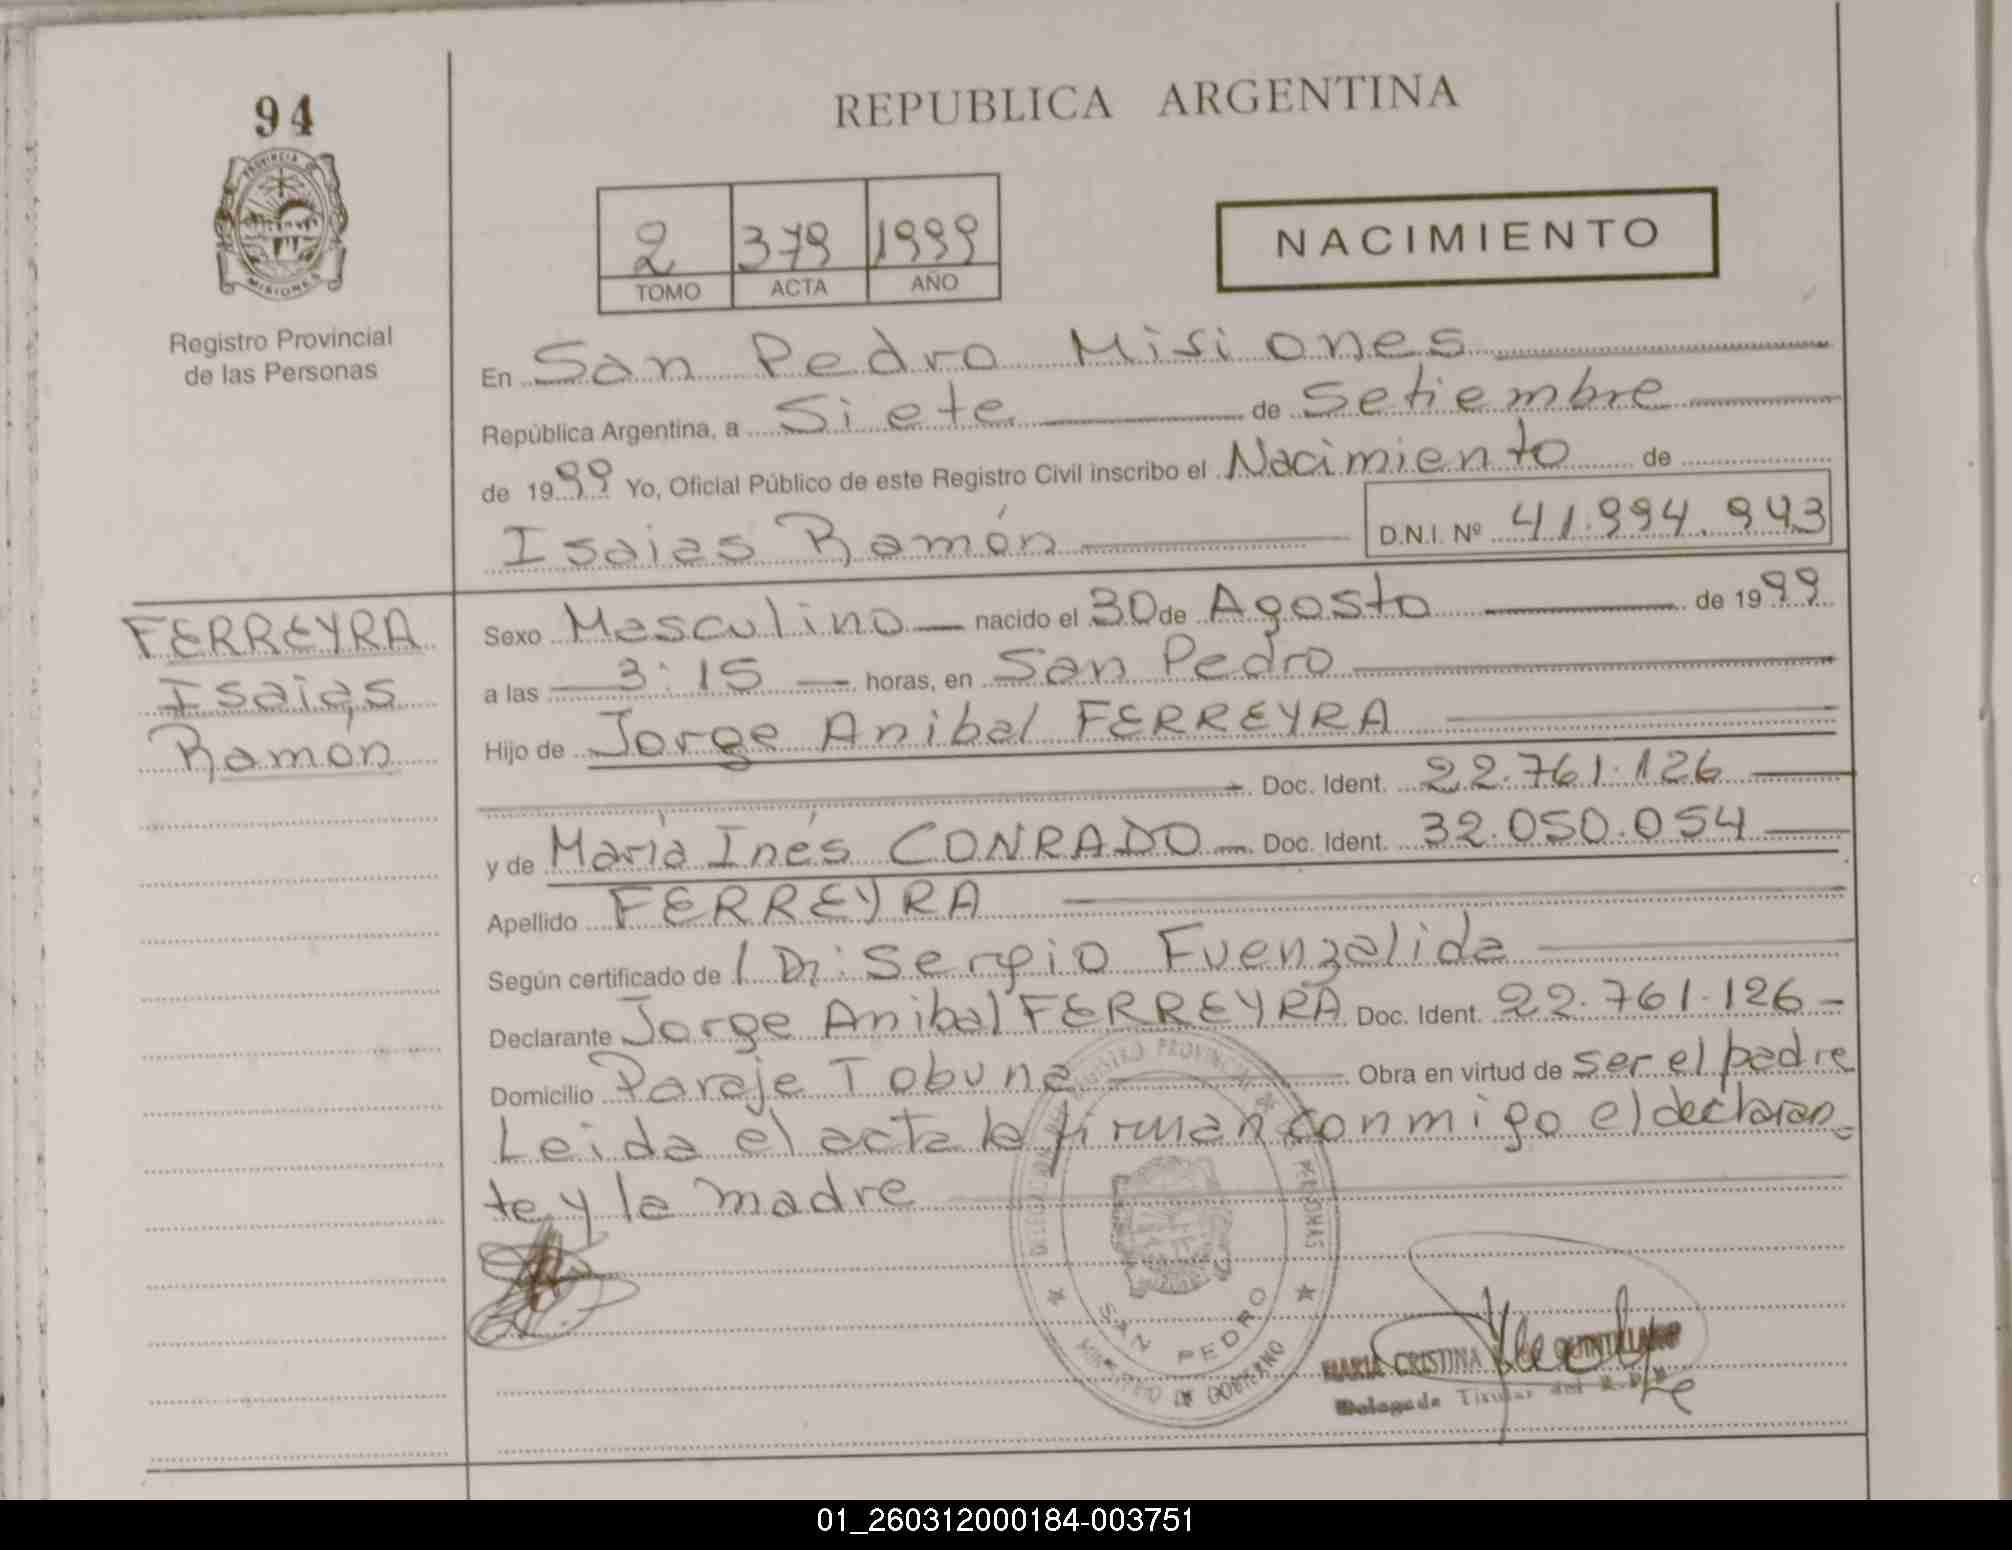 94
PROVINCIA DE
MISIONES
Registro Provincial
de las Personas
REPUBLICA ARGENTINA
2 379 1999
TOMO ACTA AÑO
NACIMIENTO
En San Pedro Misiones
República Argentina, a Siete de Setiembre
de 1999 Yo, Oficial Público de este Registro Civil inscribo el Nacimiento de
Isaias Ramón D.N.I. Nº 41.994.943
FERREYRA
Isaias
Ramón
Sexo Masculino nacido el 30 de Agosto de 1999
a las 3:15 horas, en San Pedro
Hijo de Jorge Anibal FERREYRA
Doc. Ident. 22.761.126
y de María Inés CONRADO Doc. Ident. 32.050.054
Apellido FERREYRA
Según certificado de Dr: Sergio Fuenzalida
Declarante Jorge Anibal FERREYRA Doc. Ident. 22.761.126
Domicilio Paraje Tobuna Obra en virtud de ser el padre
Leida el acta la firman conmigo el declaran-
te y la madre
REGISTRO PROVINCIAL DE LAS PERSONAS
SAN PEDRO
MINISTERIO DE GOBIERNO
MARIA CRISTINA QUINTILIANO
Delegada Titular del R.P.P.
01_260312000184-003751